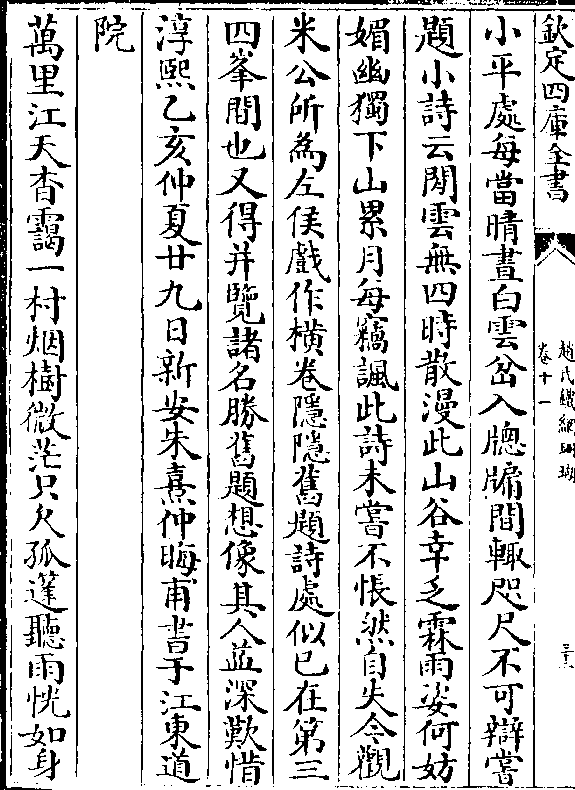 欽定四庫全書
趙氏鐵網珊瑚
卷十一
小平處每當晴晝白雲坌入牕牖間輙咫尺不可辯嘗
題小詩云閒雲無四時散漫此山谷幸乏霖雨姿何妨
媚幽獨下山累月每竊諷此詩未嘗不悵然自失今觀
米公所為左侯戲作橫卷隱隱舊題詩處似已在第三
四峯間也又得并覽諸名勝舊題想像其人益深歎惜
淳熙乙亥仲夏廿九日新安朱熹仲晦甫書于江東道
院
萬里江天杳靄一村烟樹微茫只欠孤篷聽雨恍如身